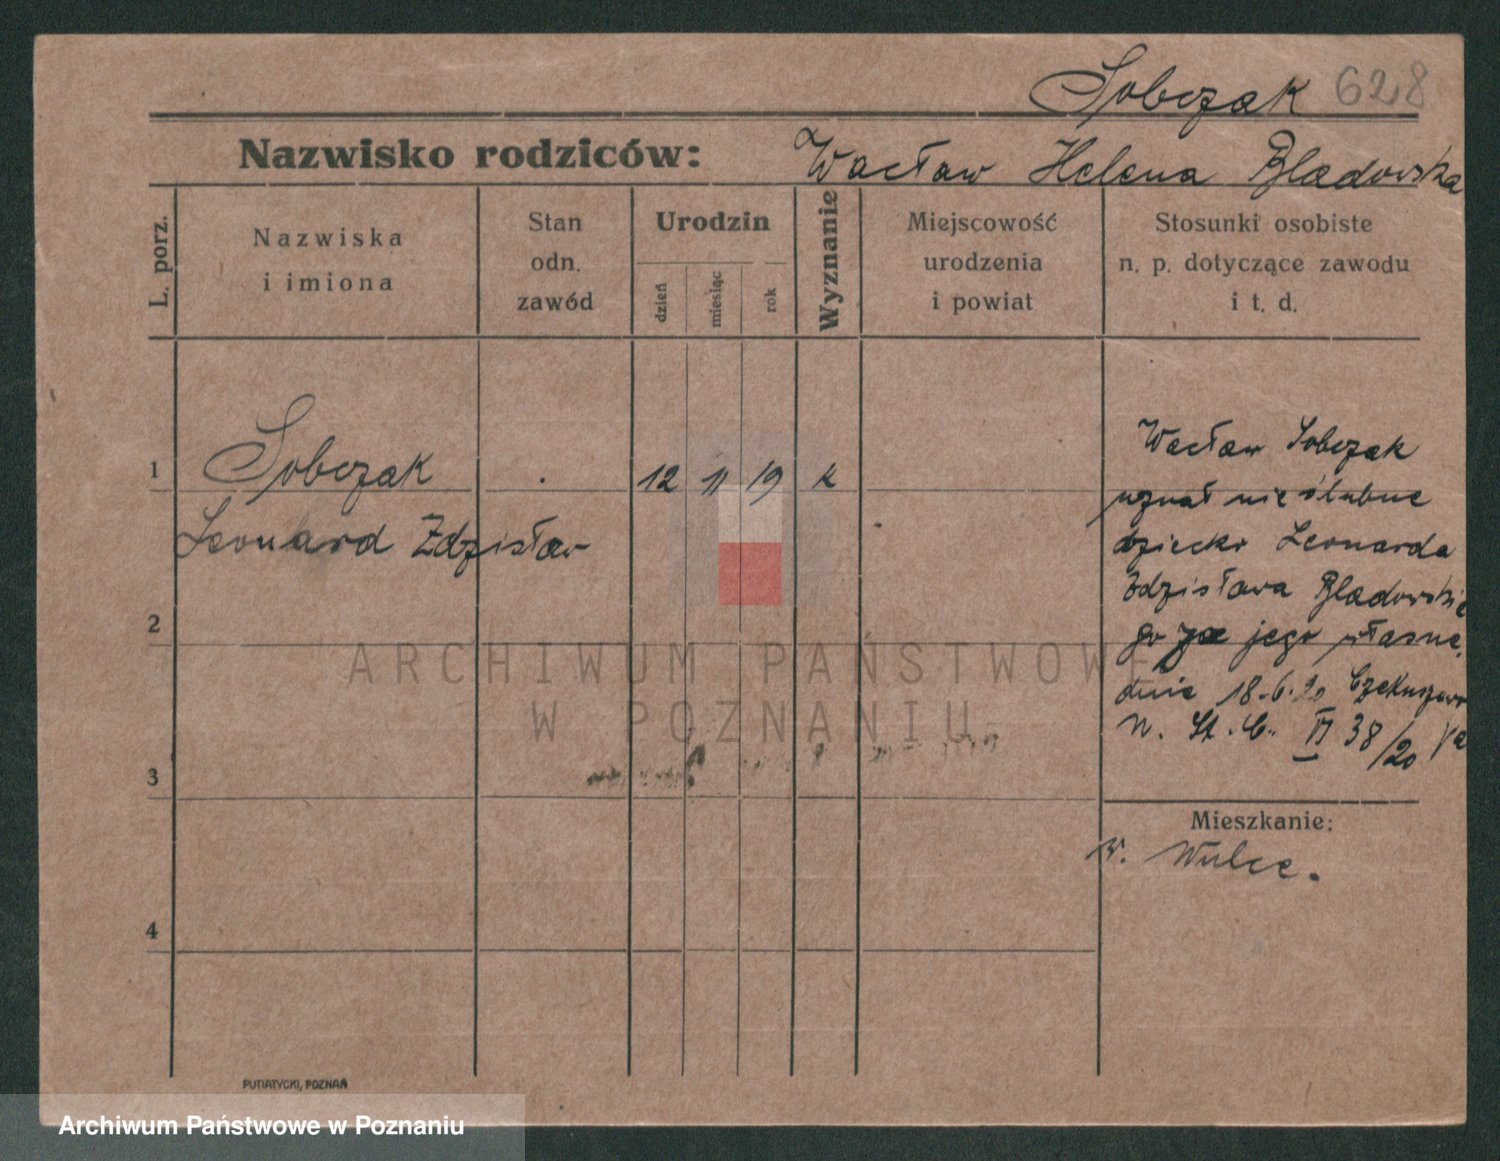 Sobczak 628
Nazwisko rodziców: Wacław Helena Bladowska
L. porz.
Nazwiska
i imiona
Stan
odn.
zawód
Urodzin
dzień
miesiąc
rok
Wyznanie
Miejscowość
urodzenia
i powiat
Stosunki osobiste
n. p. dotyczące zawodu
i t. d.
1 Sobczak 12 11 19 k
Leonard Zdzisław
2
3
4
Wacław Sobczak
uznał nieślubne
dziecko Leonarda
Zdzisława Bladowskie
go za jego własne.
dnia 18.6.20
N. St. C. VI 38/20
Mieszkanie:
w. Wulce.
ARCHIWUM PAŃSTWOWE
W POZNANIU
PUTIATYCKI, POZNAŃ
Archiwum Państwowe w Poznaniu